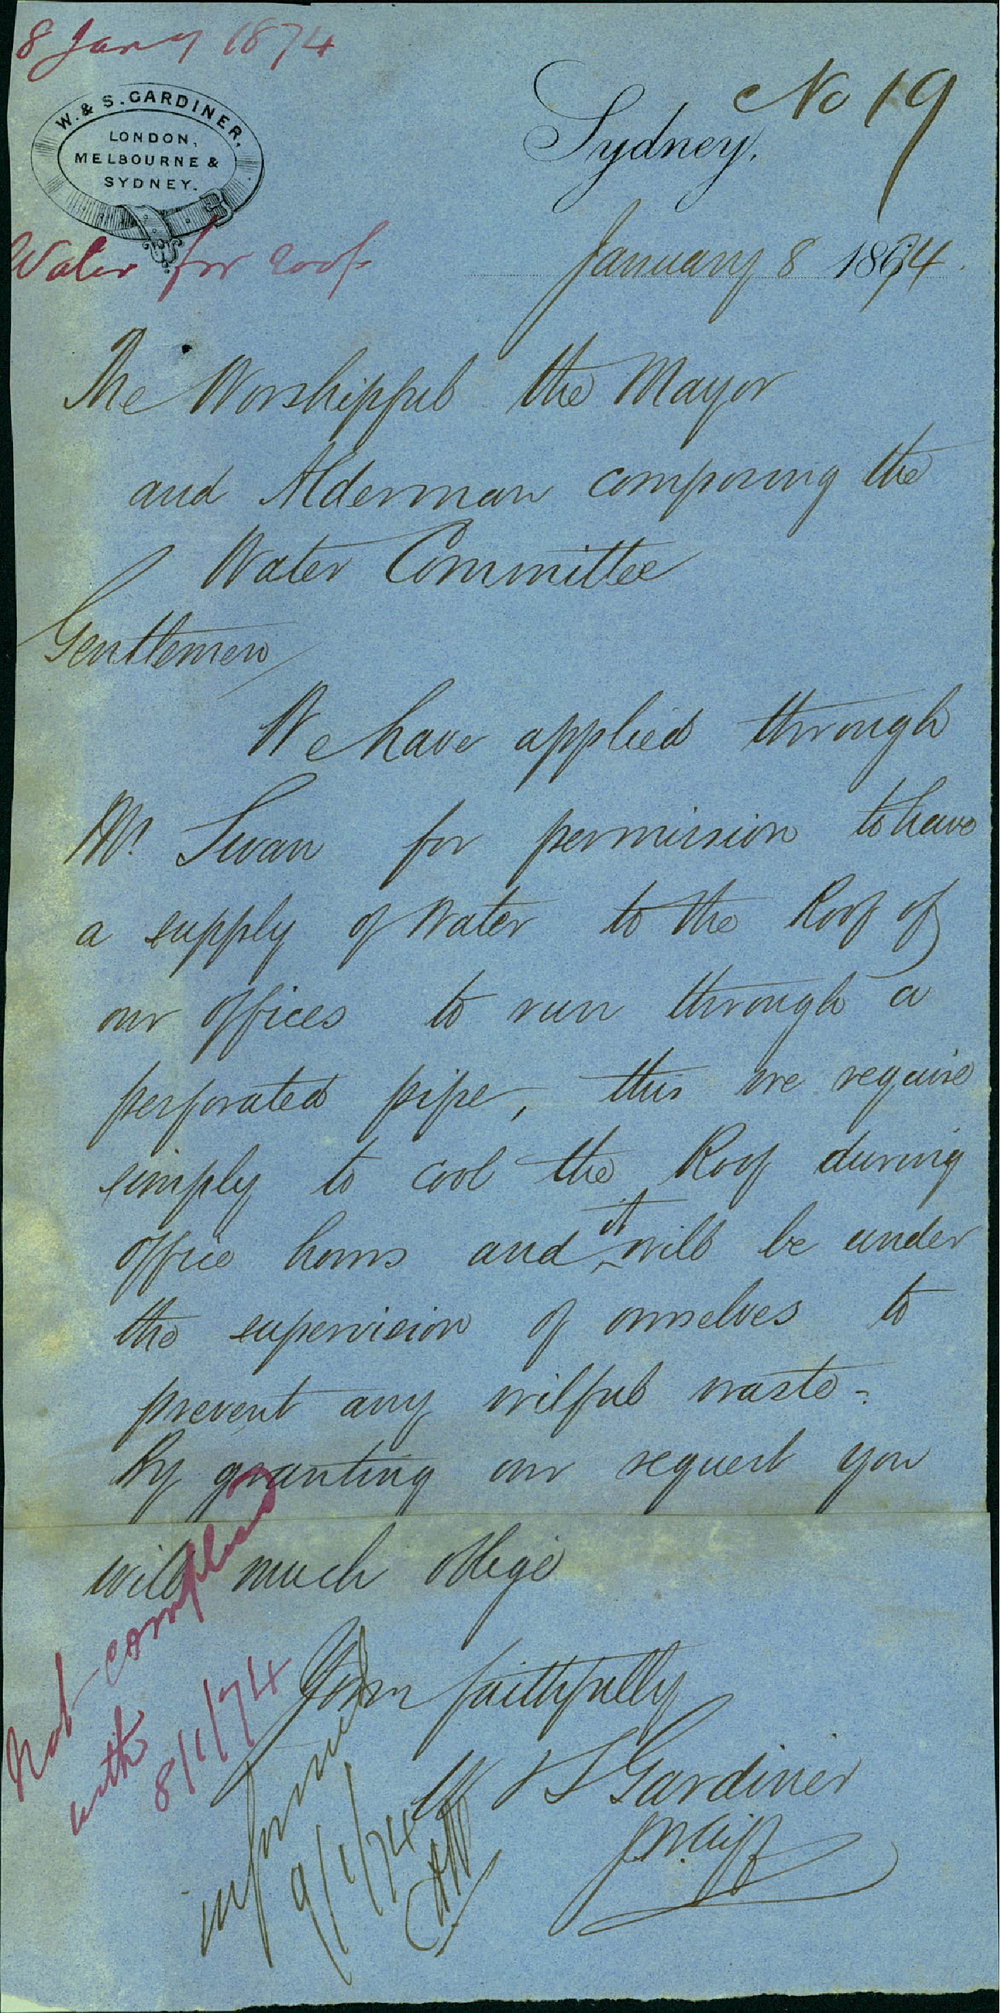 8 Jany 1874
No 19
W. & S. GARDINER,
LONDON,
MELBOURNE &
SYDNEY.
Sydney,
Water for roof
January 8 1874.
The Worshipful the Mayor
and Alderman composing the
Water Committee
Gentlemen
We have applied through
Mr. Swan for permission to have
a supply of Water to the Roof of
our offices to run through a
perforated pipe, this we require
simply to cool the Roof during
office hours and it will be under
the supervision of ourselves to
prevent any wilful waste -
By granting our request you
will much oblige
Yours faithfully
W & S Gardiner
Not complied
with
8/1/74
informed
9/1/74